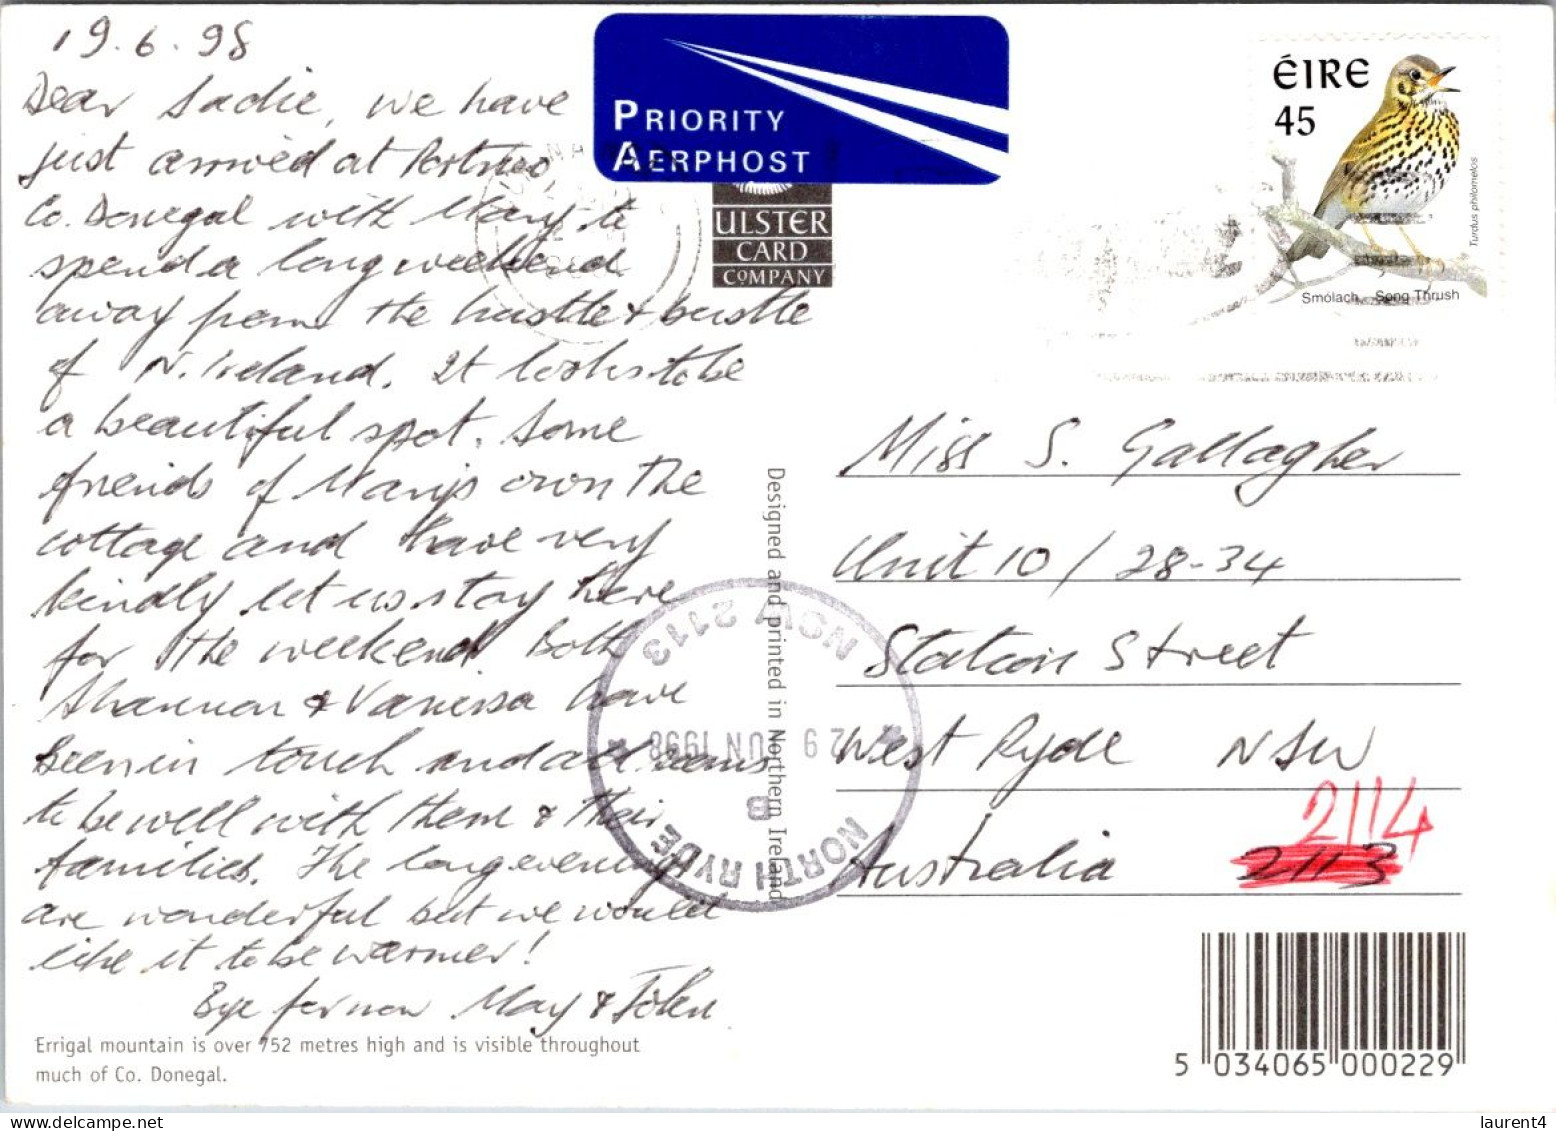 19.6.98
Dear Sadie, we have
just arrived at Portnoo,
Co. Donegal with Mary to
spend a long weekend
away from the hustle & bustle
of N. Ireland. It looks to be
a beautiful spot. Some
friends of Mary's own the
cottage and have very
kindly let us stay here
for the weekend. Both
Shannon & Vanessa have
been in touch and all seems
to be well with them & their
families. The long evenings
are wonderful but we would
like it to be warmer!
Bye for now May & John
Errigal mountain is over 752 metres high and is visible throughout
much of Co. Donegal.
PRIORITY
AERPHOST
ULSTER
CARD
COMPANY
Designed and printed in Northern Ireland
NSW 2113
29 JUN 1998
8
NORTH RYDE
ÉIRE
45
Turdus philomelos
Smólach Song Thrush
Miss S. Gallagher
Unit 10 / 28-34
Station Street
West Ryde NSW
2114
Australia 2113
5 034065 000229
laurent4